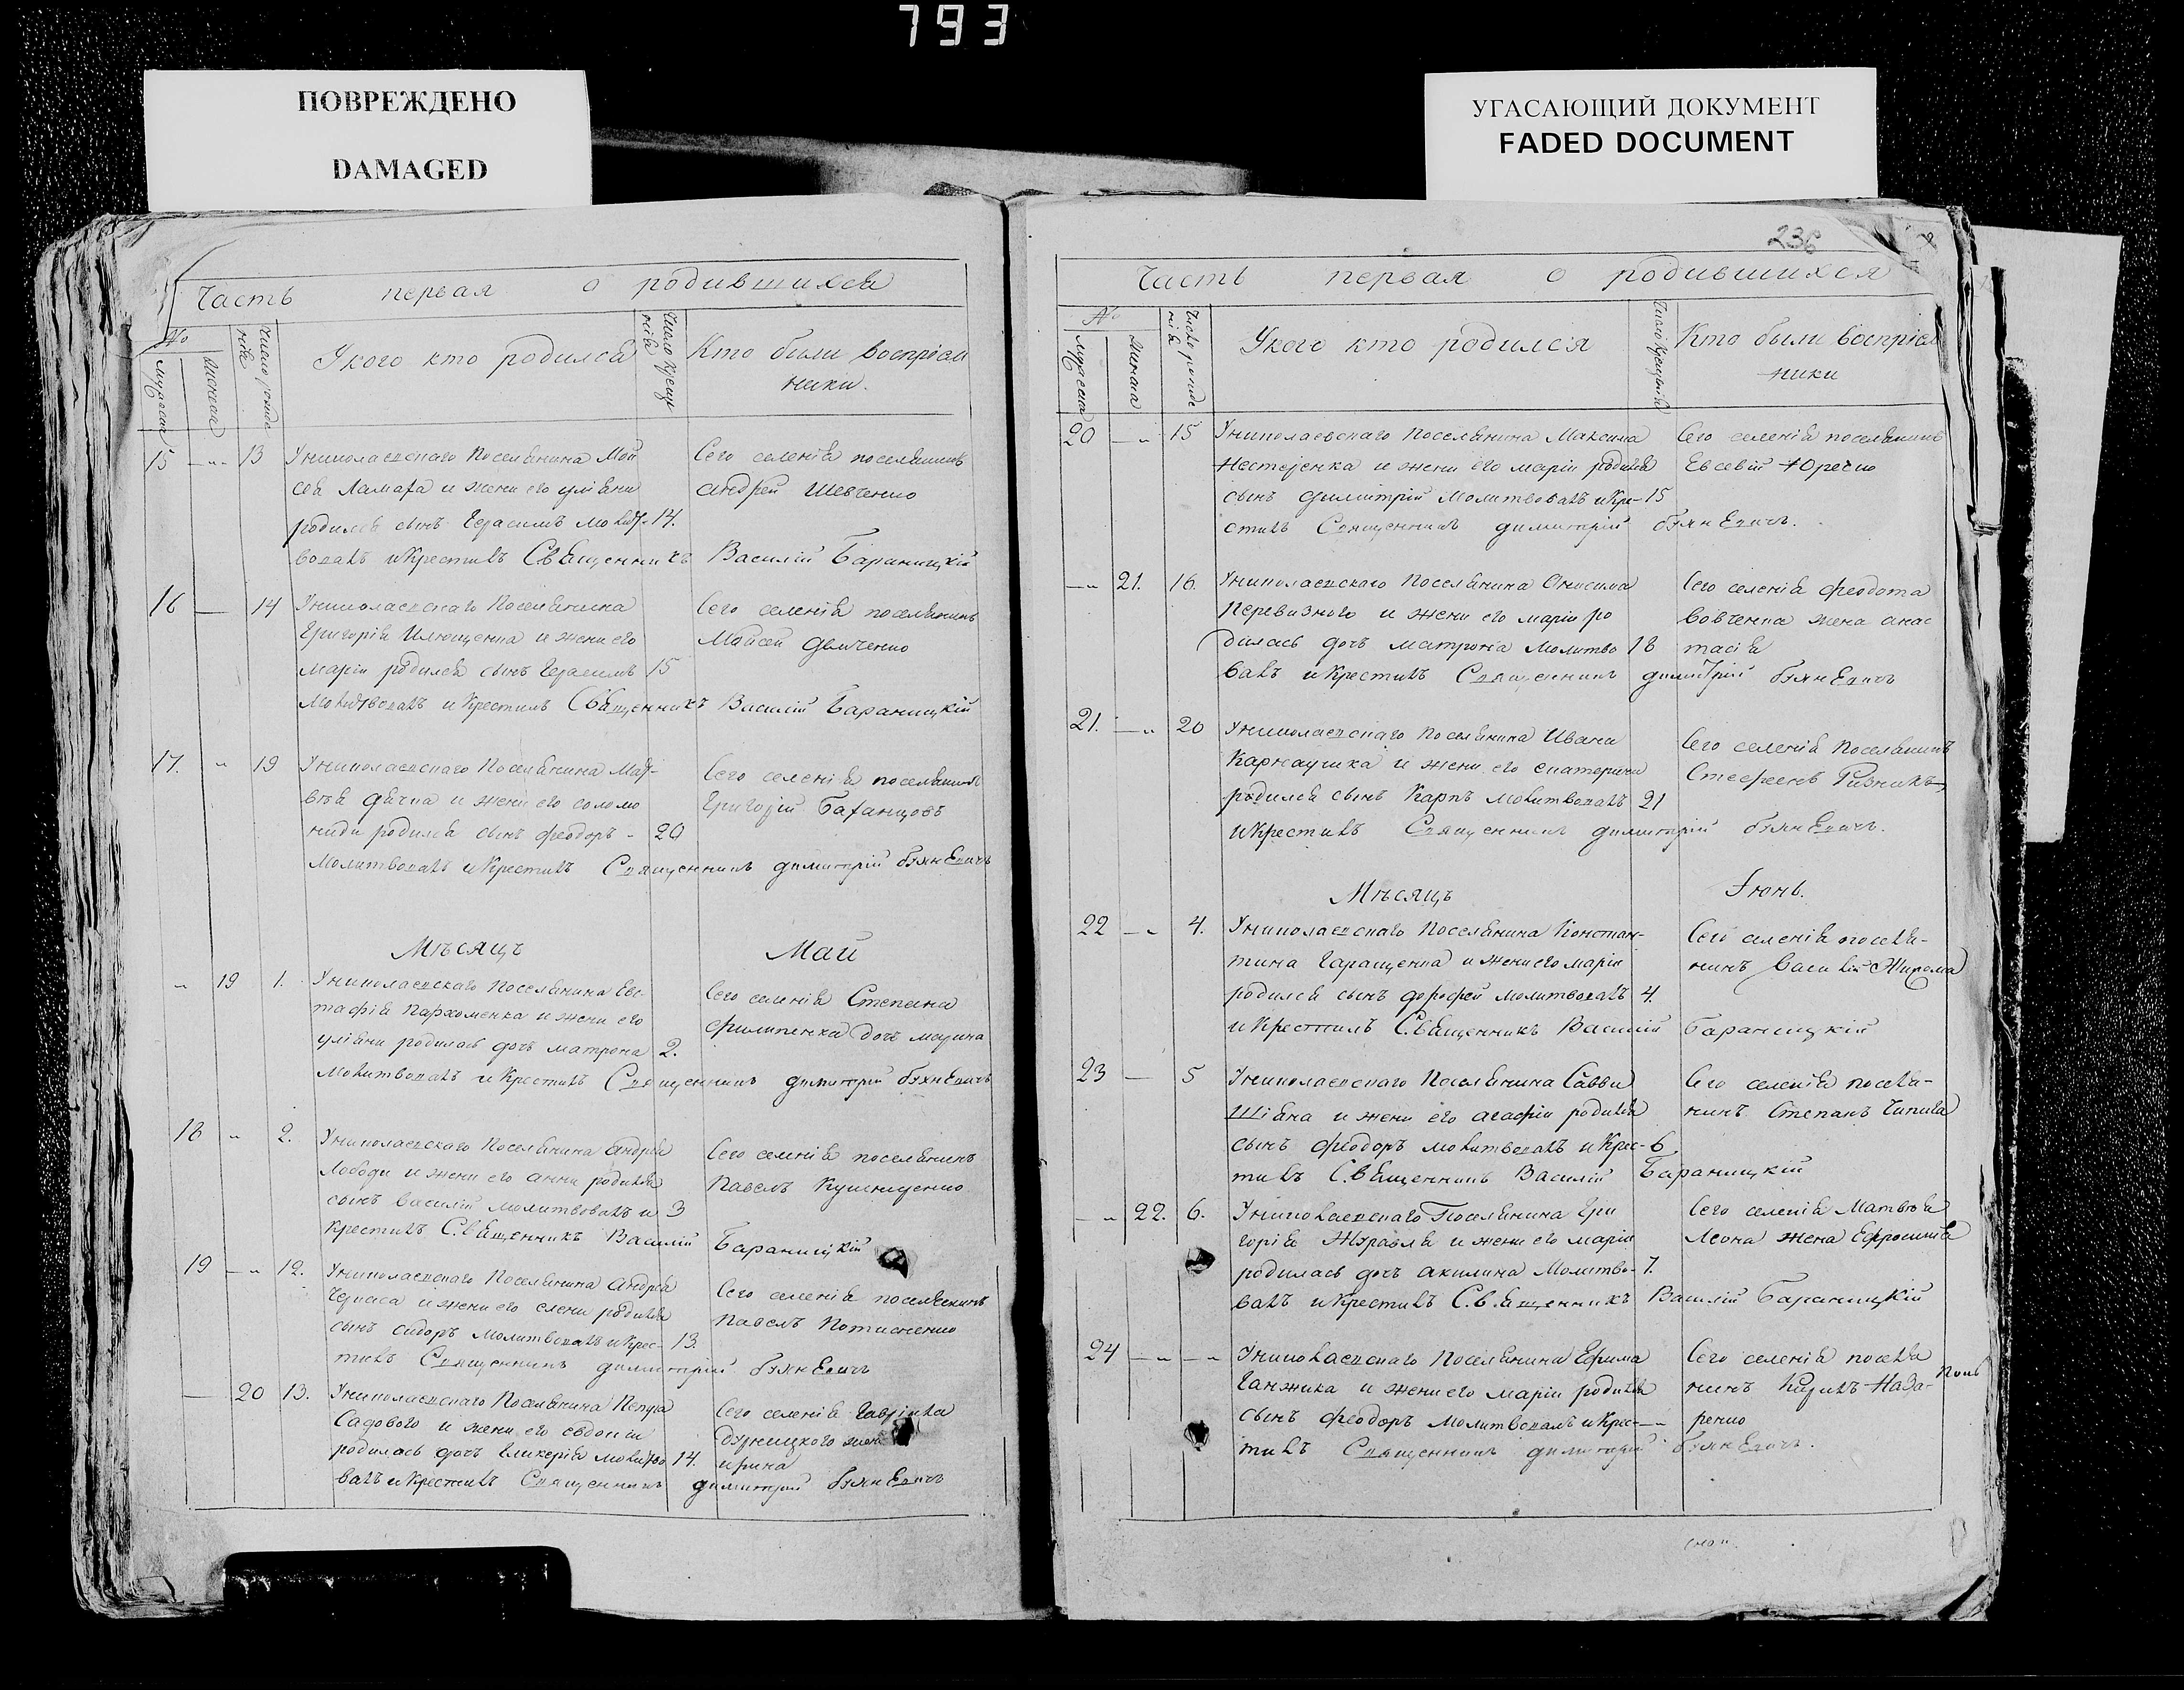 793
ПОВРЕЖДЕНО
DAMAGED
УГАСАЮЩИЙ ДОКУМЕНТ
FADED DOCUMENT
Часть первая о родившихся
№
Мужеска
Женска
Число рожде
нія
У кого кто родился
Число креще
нія
Кто были воспріем
ники.
15 — „ 13 У николаевскаго Поселянина Мои
сея Ламара и жены его уліяни
родился сынъ Герасимъ молит- 14.
вовалъ и крестилъ Священникъ Василій Бараницкій
Сего селенія поселянинъ
андрей Шевченко
16 — 14 У николаевскаго Поселянина
Григорія Илющенка и жены его
маріи родился сынъ Герасимъ 15
Молитвовалъ и крестилъ Священникъ Василій Бараницкій
Сего селенія поселянинъ
Мойсей демченко
17. „ 19 У николаевскаго Поселянина Мат-
вѣя дячка и жены его соломо
ниди родился сынъ феодоръ - 20
Молитвовалъ и крестилъ Священникъ димитрій
Сего селенія поселянинъ
Григорій
Мѣсяцъ Май
„ 19 1. У николаевскаго Поселянина Евс
тафія Пархоменка и жены его
уліяни родилась дочь матрона 2.
Молитвовалъ и крестилъ Священникъ димитрій
Сего селенія Степана
филипенка дочь марина
18 „ 2. У николаевскаго Поселянина андрея
Лободи и жены его анни родился
сынъ василій молитвовалъ и 3
крестилъ Священникъ Василій Бараницкій
Сего селенія поселянинъ
Павелъ
19 — „ 12. У николаевскаго Поселянина андрея
Черкаса и жены его елени родился
сынъ сидоръ молитвовалъ и крес- 13.
тилъ Священникъ димитрій
Сего селенія поселянинъ
Павелъ Потисненко
— 20 13. У николаевскаго Поселянина Петра
Садового и жены его евдокіи
родилась дочь гликерія молитво 14.
валъ и крестилъ Священникъ димитрій
Сего селенія Гавріила
жена
ирина
236
Часть первая о родившихся
№
Мужеска
Женска
Число рожде
нія
У кого кто родился
Число крещенія
Кто были воспріем
ники
20 — „ 15 У николаевскаго Поселянина Максима
Нестеренка и жены его маріи родился
сынъ димитрій Молитвовалъ и кре- 15
стилъ Священникъ димитрій
Сего селенія поселянинъ
Евсевій Юречко
— „ 21. 16. У николаевскаго Поселянина Онисима
Перевизного и жены его маріи ро
дилась дочь матрона Молитво 18
валъ и крестилъ Священникъ димитрій
Сего селенія феодота
вовченка жена анас
тасія
21. — „ 20 У николаевскаго Поселянина Ивана
Карнаушка и жены его екатерини
родился сынъ Карпъ молитвовалъ 21
и крестилъ Священникъ димитрій
Сего селенія Поселянинъ
Стефенъ Ризникъ
Мѣсяцъ Іюнь.
22 — „ 4. У николаевскаго Поселянина Констан-
тина Гаращенка и жены его маріи
родился сынъ дорофей молитвовалъ 4.
и крестилъ Священникъ Василій Бараницкій
Сего селенія поселя-
нинъ Василій
23 — 5 У николаевскаго Поселянина Саввы
Шіяна и жены его агафіи родился
сынъ феодоръ молитвовалъ и крес- 6
тилъ Священникъ Василій Бараницкій
Сего селенія поселя-
нинъ Степанъ Чипига
— „ 22. 6. У николаевскаго Поселянина Гри
горія Журавля и жены его маріи
родилась дочь акилина Молитво- 7.
валъ и крестилъ Священникъ Василій Бараницкій
Сего селенія Матвѣя
Леона жена Ефросинія
24 — „ — „ У николаевскаго Поселянина Ефима
Ганжика и жены его маріи родился
сынъ феодоръ Молитвовалъ и крес- — „
тилъ Священникъ димитрій
Сего селенія поселя
нинъ Кирилъ Наза-
ренко